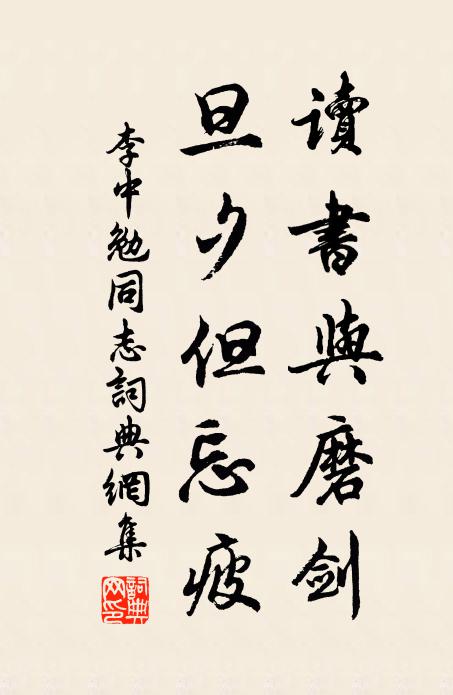 讀書與磨剑
旦夕但忘疲
李中勉同志詞典網集
詞典网印